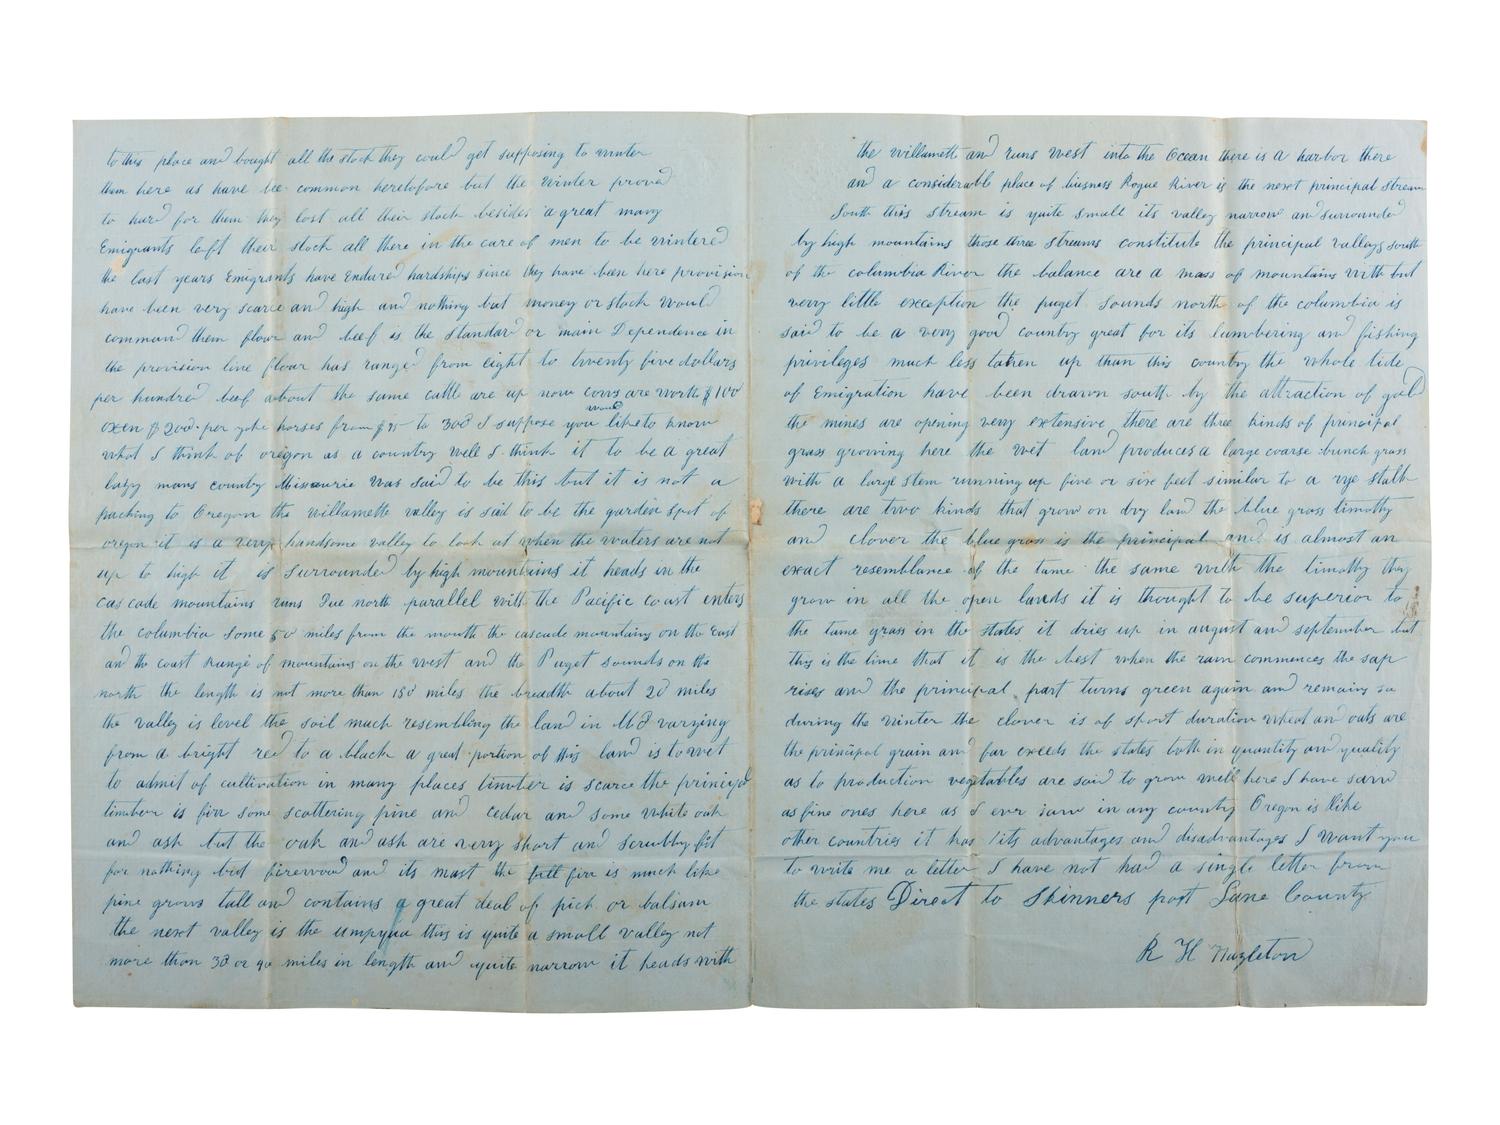 to this place and bought all the stock they could get supposing to winter
them here as have bee common heretofore but the winter proved
to hard for them they lost all their stock besides a great many
Emigrants left their stock all there in the care of men to be wintered
the last years Emigrants have Endured hardships since they have been here provision
have been very scarce and high and nothing but money or stock would
command them flour and beef is the standard or main Dependence in
the provision line flour has ranged from eight to twenty five dollars
per hundred beef about the same cattle are up now cows are worth $100
would
oxen $200 per yoke horses from $75 to 300 I suppose you like to know
what I think of oregon as a country well I think it to be a great
lazy mans country Missourie was said to be this but it is not a
paching to Oregon the willamette valley is said to be the garden spot of
oregon it is a very handsome valley to look at when the waters are not
up to high it is surrounded by high mountains it heads in the
cascade mountains runs Due north parallel with the Pacific coast enters
the columbia some 50 miles from the mouth the cascade mountains on the East
and the coast range of mountains on the west and the Puget sounds on the
north the length is not more than 150 miles the breadth about 20 miles
the valley is level the soil much resembling the land in MO varying
from a bright red to a black a great portion of this land is to wet
to admit of cultivation in many places timber is scarce the principal
timber is firr some scattering pine and cedar and some white oak
and ash but the oak and ash are very short and scrubby fit
for nothing but firewood and its mast the firr is much like
pine grows tall and contains a great deal of pich or balsam
the next valley is the umpqua this is quite a small valley not
more than 30 or 40 miles in length and quite narrow it heads with
the willamett and runs west into the Ocean there is a harbor there
and a considerable place of business Rogue River is the next principal stream
South this stream is quite small its valley narrow and surrounded
by high mountains those three streams constitute the principal valleys south
of the columbia River the balance are a mass of mountains with but
very little exception the puget sounds north of the columbia is
said to be a very good country great for its lumbering and fishing
privileges much less taken up than this country the whole tide
of Emigration have been drawn south by the attraction of gold
the mines are opening very extensive there are three kinds of principal
grass growing here the wet land produces a large coarse bunch grass
with a large stem running up five or six feet similar to a rye stalk
there are two kinds that grow on dry land the blue grass timothy
and clover the blue grass is the principal and is almost an
exact resemblance of the tame the same with the timothy they
grow in all the open lands it is thought to be superior to
the tame grass in the states it dries up in august and september but
this is the time that it is the best when the rain commences the sap
rises and the principal part turns green again and remains so
during the winter the clover is of short duration wheat and oats are
the principal grain and far exceeds the states both in quantity and quality
as to production vegetables are said to grow well here I have saw
as fine ones here as I ever saw in any country Oregon is like
other countries it has its advantages and disadvantages I want you
to write me a letter I have not had a single letter from
the states Direct to Skinners post Lane County
R H Hazleton